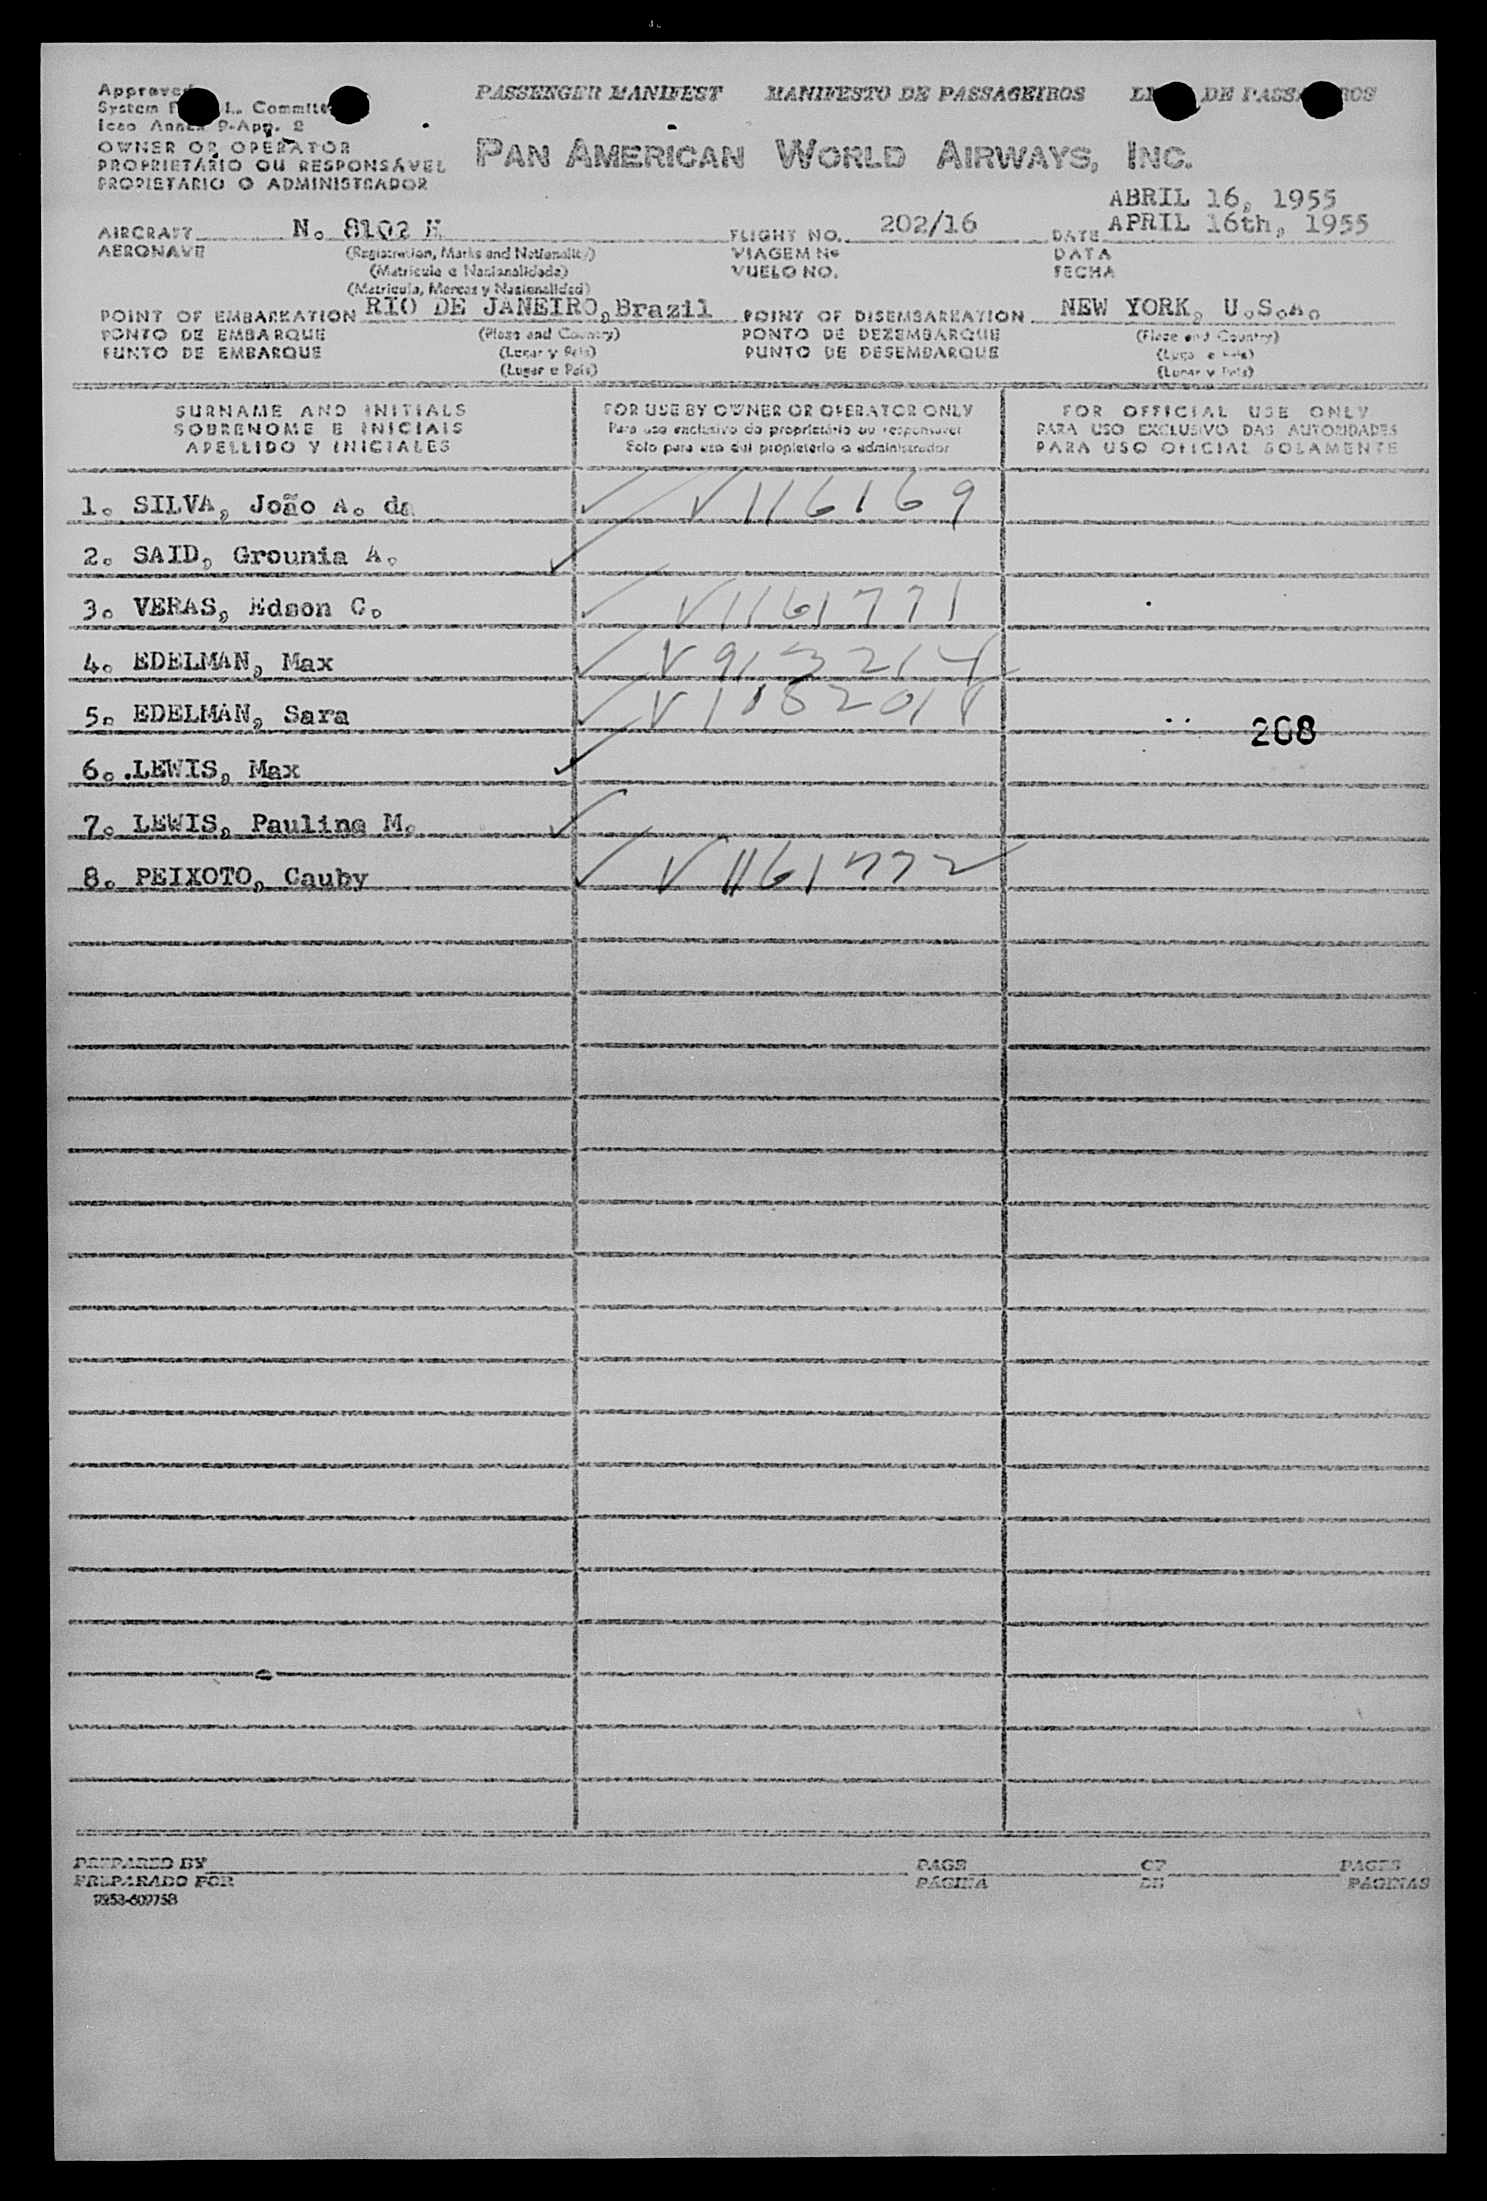 Approved
System F L. Committe
Icao Annex 9-App. 2
PASSENGER MANIFEST MANIFESTO DE PASSAGEIROS DE PASSA ROS
OWNER OR OPERATOR
PROPRIETÁRIO OU RESPONSÁVEL
PROPIETARIO O ADMINISTRADOR
PAN AMERICAN WORLD AIRWAYS, INC.
ABRIL 16, 1955
AIRCRAFT N. 8102 H FLIGHT NO. 202/16 DATE APRIL 16th, 1955
AERONAVE (Registration, Marks and Nationality) VIAGEM Nº DATA
(Matricula e Nacionalidade) VUELO NO. FECHA
(Matricula, Marcas y Nacionalidad)
POINT OF EMBARKATION RIO DE JANEIRO, Brazil POINT OF DISEMBARKATION NEW YORK, U.S.A.
PONTO DE EMBARQUE (Place and Country) PONTO DE DEZEMBARQUE (Place and Country)
PUNTO DE EMBARQUE (Lugar y Pais) PUNTO DE DESEMBARQUE (Lugar e Pais)
(Lugar e Pais) (Lugar y Pais)
SURNAME AND INITIALS FOR USE BY OWNER OR OPERATOR ONLY FOR OFFICIAL USE ONLY
SOBRENOME E INICIAIS Para uso exclusivo do proprietário ou responsavel PARA USO EXCLUSIVO DAS AUTORIDADES
APELLIDO Y INICIALES Solo para uso del propietario o administrador PARA USO OFICIAL SOLAMENTE
1. SILVA, João A. da ✓ V 116169
2. SAID, Grounia A. ✓
3. VERAS, Edson C. ✓ V1161771
4. EDELMAN, Max ✓ V 913214
5. EDELMAN, Sara ✓ V
208
6. LEWIS, Max ✓
7. LEWIS, Pauline M. ✓
8. PEIXOTO, Cauby ✓ V 1161772
PREPARED BY PAGE OF PAGES
PREPARADO POR PÁGINA DE PÁGINAS
9253-609758